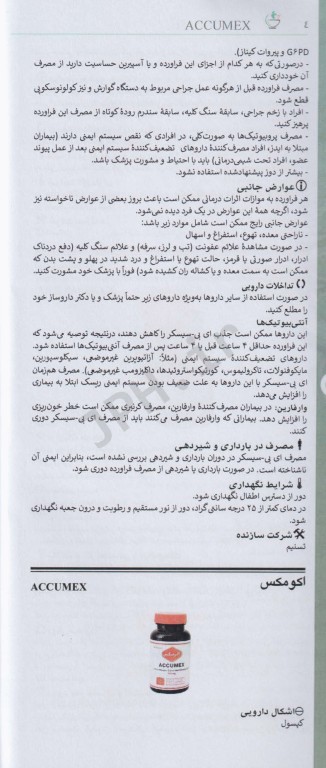 ACCUMEX ٤
G6PD و پیروات کیناز).
- درصورتی‌که به هر کدام از اجزای این فراورده و یا آسپیرین حساسیت دارید از مصرف
آن خودداری کنید.
- مصرف فراورده قبل از هرگونه عمل جراحی مربوط به دستگاه گوارش و نیز کولونوسکوپی
قطع شود.
- افراد با زخم جراحی، سابقۀ سنگ کلیه، سابقۀ سندرم رودۀ کوتاه از مصرف این فراورده
پرهیز کنید.
- مصرف پروبیوتیک‌ها به صورت‌کلی، در افرادی که نقص سیستم ایمنی دارند (بیماران
مبتلا به ایدز، افراد مصرف‌کنندۀ داروهای تضعیف‌کنندۀ سیستم ایمنی بعد از عمل پیوند
عضو، افراد تحت شیمی‌درمانی) باید با احتیاط و مشورت پزشک باشد.
- بیشتر از دوز پیشنهادشده استفاده نشود.
عوارض جانبی
هر فراورده به موازات اثرات درمانی ممکن است باعث بروز بعضی از عوارض ناخواسته نیز
شود، اگرچه همۀ این عوارض در یک فرد دیده نمی‌شود.
عوارض جانبی رایج ممکن است شامل موارد زیر باشد:
- ناراحتی معده، تهوع، استفراغ و اسهال
- در صورت مشاهدۀ علائم عفونت (تب و لرز، سرفه) و علائم سنگ کلیه (دفع دردناک
ادرار، ادرار صورتی یا قرمز، حالت تهوع یا استفراغ و درد شدید در پهلو و پشت بدن که
ممکن است به سمت معده و یا کشاله ران کشیده شود) فوراً با پزشک خود مشورت کنید.
تداخلات دارویی
در صورت استفاده از سایر داروها به‌ویژه داروهای زیر حتماً پزشک و یا دکتر داروساز خود
را مطلع کنید.
آنتی‌بیوتیک‌ها
این داروها ممکن است جذب ای بی-سیسکر را کاهش دهند، درنتیجه توصیه می‌شود که
این فراورده حداقل ۴ ساعت قبل یا ۴ ساعت پس از مصرف آنتی‌بیوتیک‌ها استفاده شود.
داروهای تضعیف‌کنندۀ سیستم ایمنی (مثلاً: آزاتیوپرین غیرموضعی، سیکلوسپورین،
مایکوفنولات، تاکرولیموس، کورتیکواستروئیدها، دفاکلیزومب غیرموضعی). مصرف هم‌زمان
ای بی-سیسکر با این داروها به علت ضعیف بودن سیستم ایمنی ریسک ابتلا به بیماری
را افزایش می‌دهد.
وارفارین: در بیماران مصرف‌کنندۀ وارفارین، مصرف کرنبری ممکن است خطر خون‌ریزی
را افزایش دهد. بیمارانی که وارفارین مصرف می‌کنند باید از مصرف ای بی-سیسکر دوری
کنند.
مصرف در بارداری و شیردهی
مصرف ای بی-سیسکر در دوران بارداری و شیردهی بررسی نشده است، بنابراین ایمنی آن
ناشناخته است. در صورت بارداری یا شیردهی از مصرف فراورده دوری شود.
شرایط نگهداری
دور از دسترس اطفال نگهداری شود.
در دمای کمتر از ۲۵ درجه سانتی‌گراد، دور از نور مستقیم و رطوبت و درون جعبه نگهداری
شود.
شرکت سازنده
تسنیم
اکومکس ACCUMEX
ACCUMEX
اشکال دارویی
کپسول